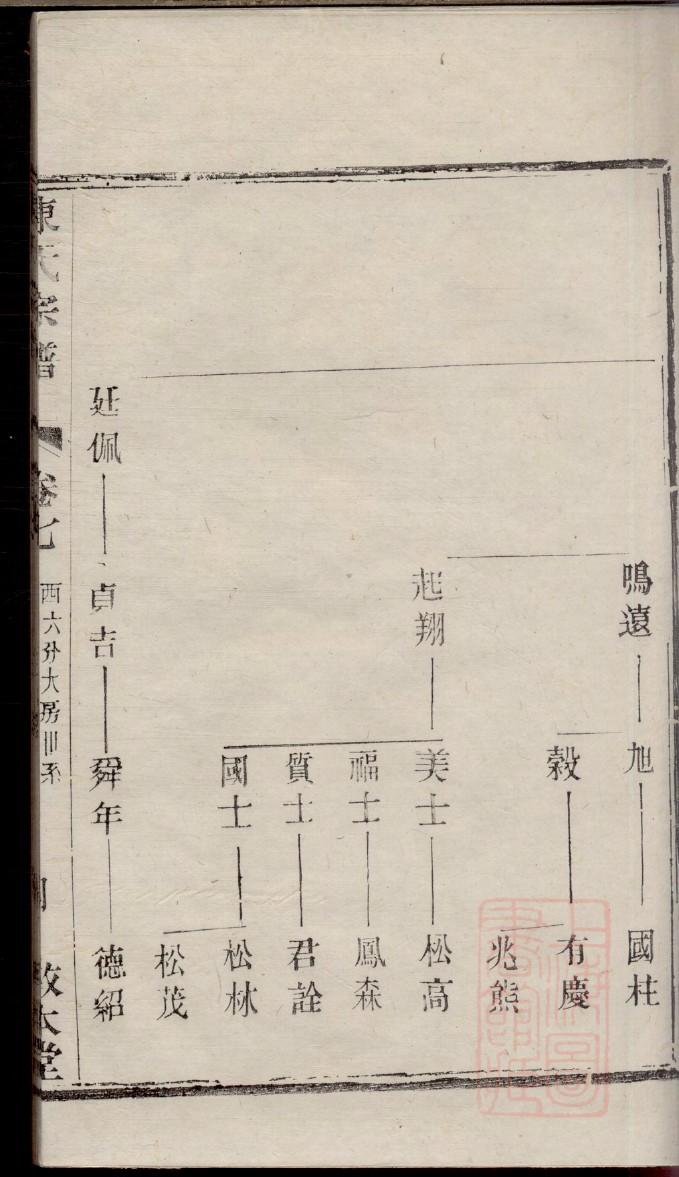 鳴遠 旭 國柱
榖 有慶
兆熊
起翔 美士 松高
福士 鳳森
質士 君詮
國士 松林
松茂
廷佩 貞吉 舜年 德紹
宗譜 卷七 西六分大房川系 敦本堂